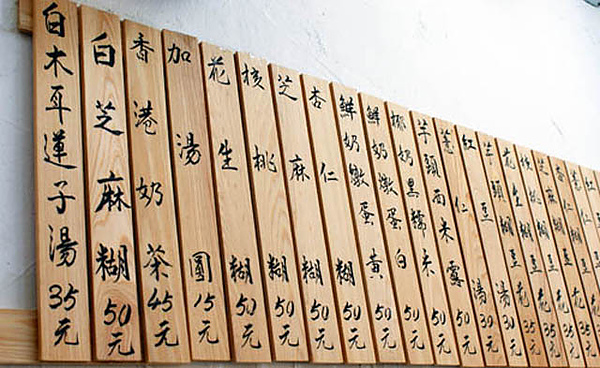 白木耳蓮子湯35元
白芝麻糊50元
香港奶茶45元
加湯圓15元
花生糊50元
核桃糊50元
芝麻糊50元
杏仁糊50元
鮮奶燉蛋黃50元
鮮奶燉蛋白50元
椰奶黑糯米50元
芋頭西米露50元
薏仁湯30元
紅豆湯30元
芋頭糊豆花35元
花生糊豆花35元
核桃糊豆花35元
芝麻糊豆花35元